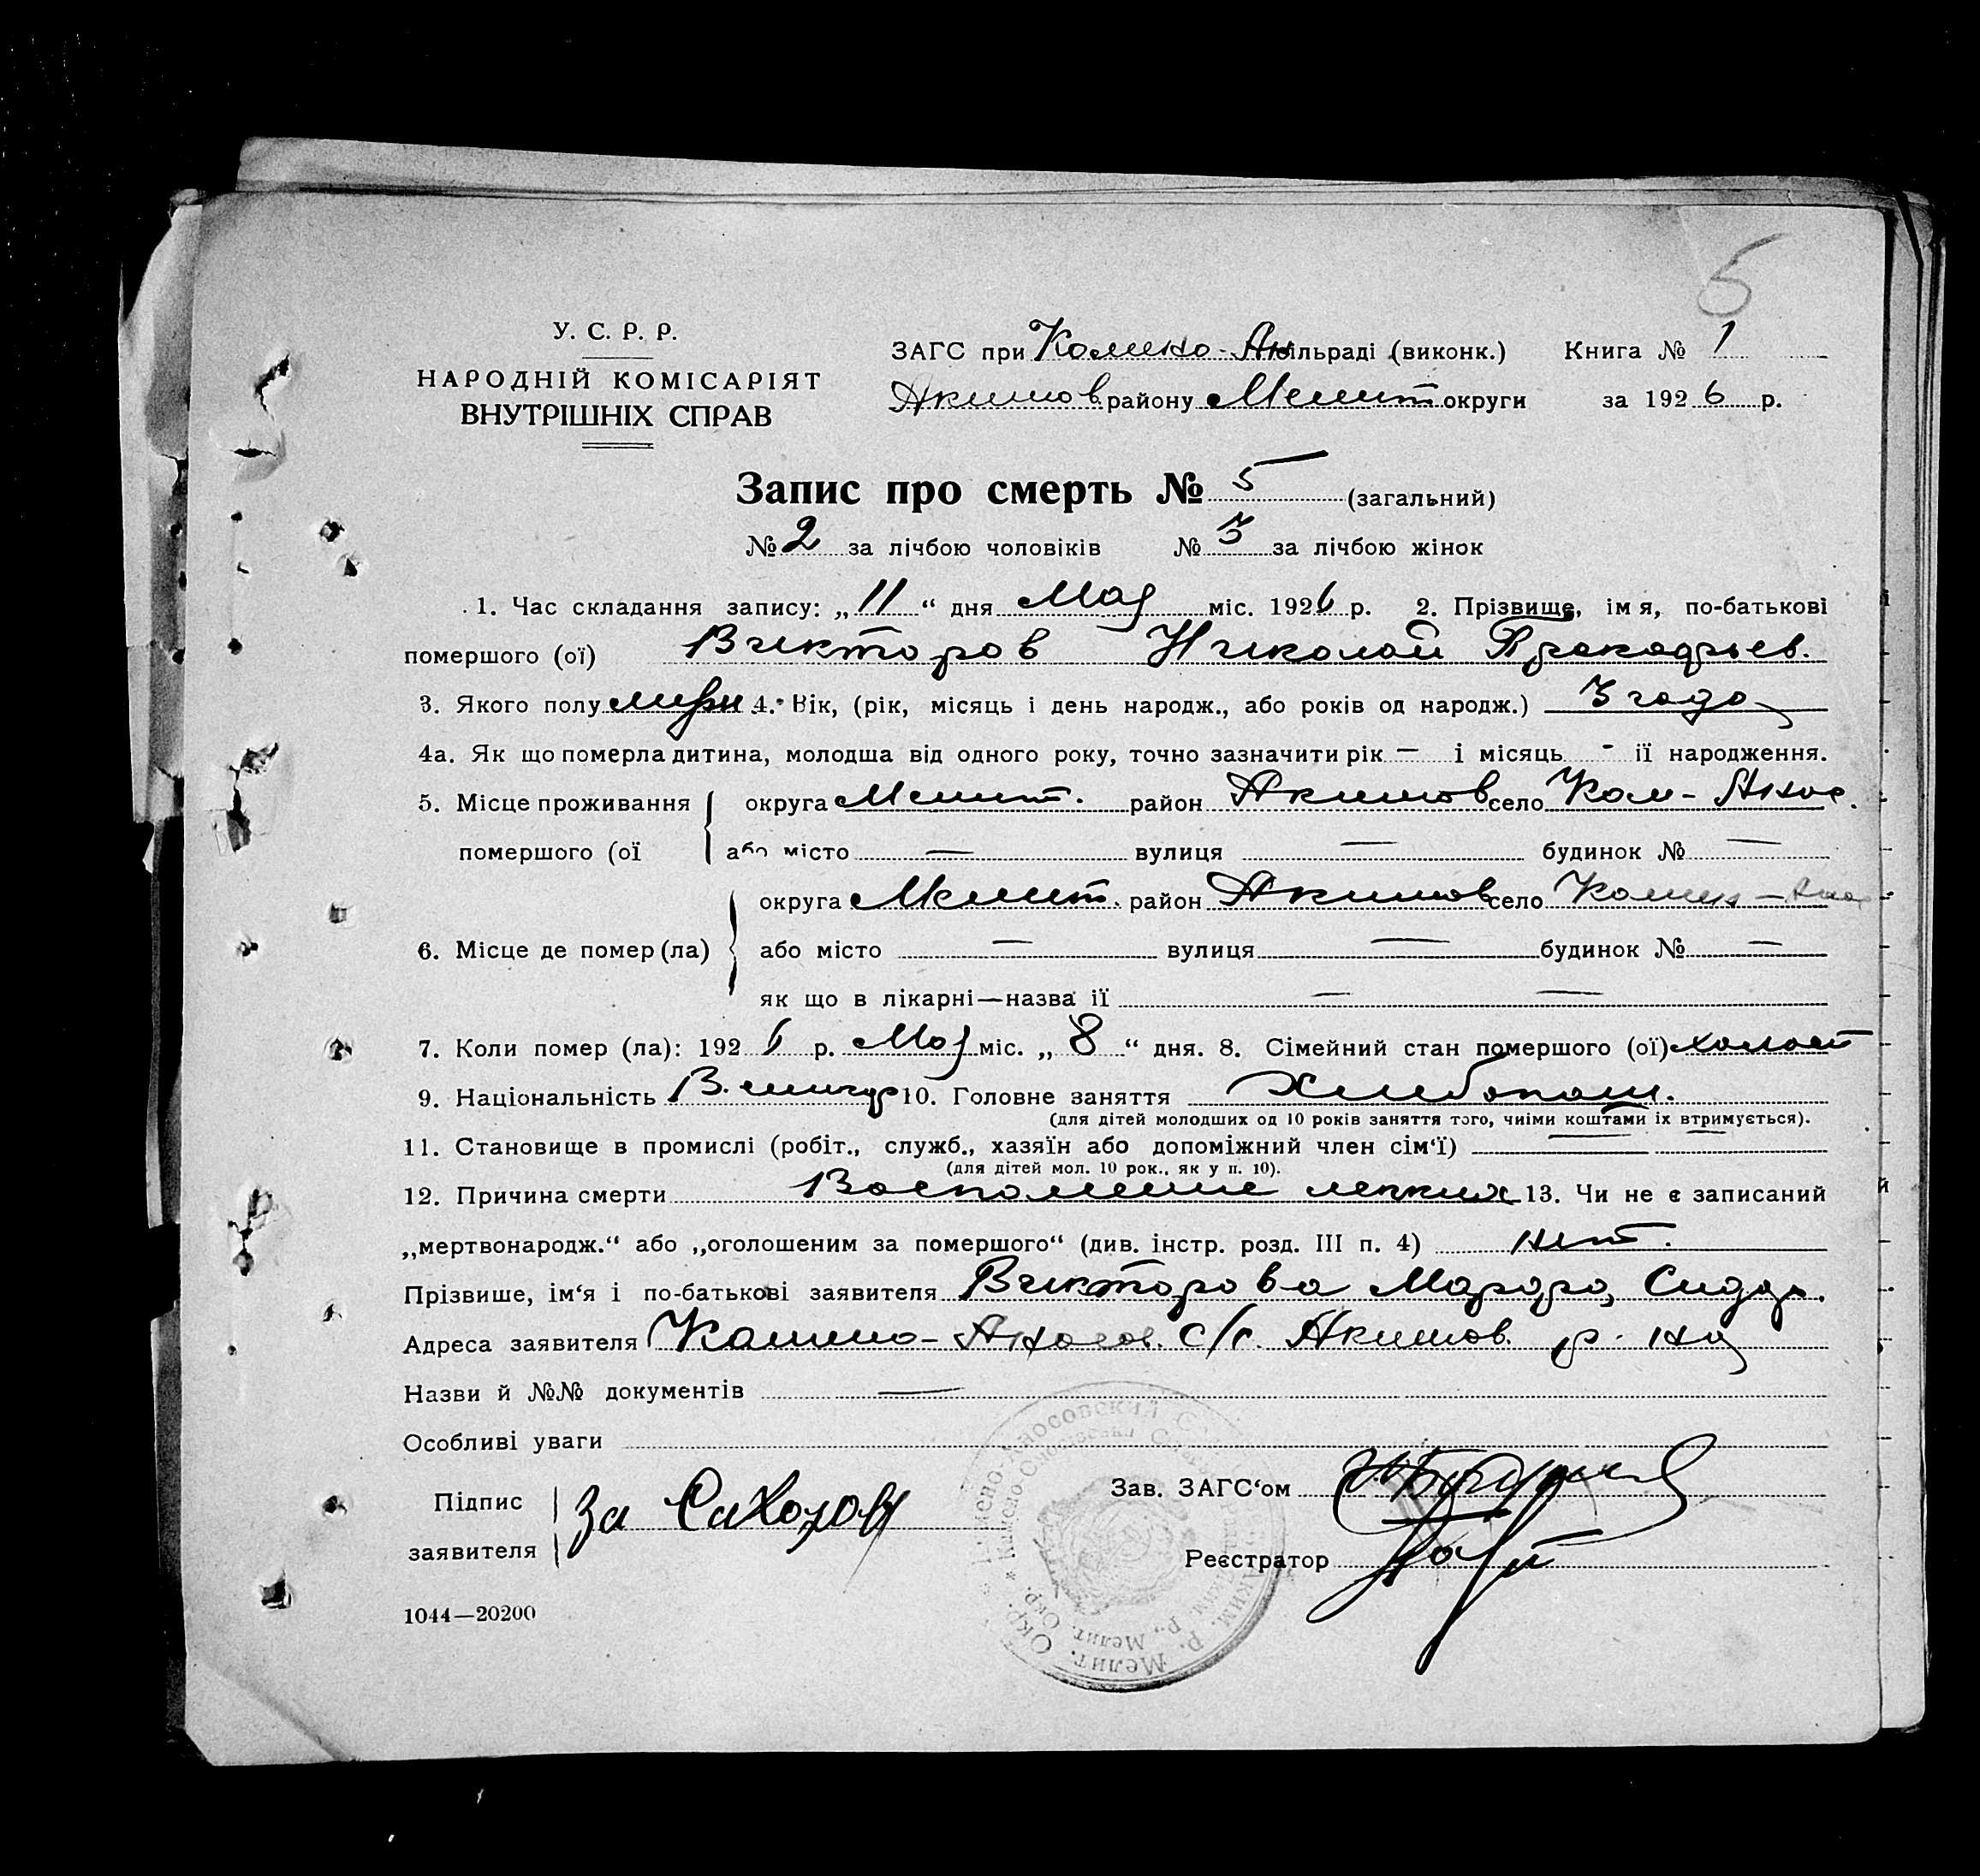 5
У. С. Р. Р.
НАРОДНІЙ КОМІСАРІЯТ
ВНУТРІШНІХ СПРАВ
ЗАГС при ільраді (виконк.) Книга № 1
Акимов. району Мелит округи за 1926 р.
Запис про смерть № 5 (загальний)
№ 2 за лічбою чоловіків № 3 за лічбою жінок
1. Час складання запису: „11“ дня Мая міс. 1926 р. 2. Прізвище, імя, по-батькові
помершого (ої) Викторов Николай Прокофьев.
3. Якого полу 4. Вік, (рік, місяць і день народж., або років од народж.) 3 года
4а. Як що померла дитина, молодша від одного року, точно зазначити рік — і місяць - її народження.
5. Місце проживання округа Мелит. район Акимов село Ком-
помершого (ої або місто — вулиця — будинок № —
округа Мелит. район Акимов село
6. Місце де помер (ла) або місто — вулиця — будинок № —
як що в лікарні—назва її — —
7. Коли помер (ла): 1926 р. Мая міс. „8“ дня. 8. Сімейний стан помершого (ої) холост
9. Національність 10. Головне заняття Хлебопаш.
(для дітей молодших од 10 років заняття того, чиїми коштами їх втримується).
11. Становище в промислі (робіт., служб., хазяїн або допоміжний член сім'ї) —
(для дітей мол. 10 рок., як у п. 10).
12. Причина смерти Воспаление легких 13. Чи не є записаний
„мертвонародж.“ або „оголошеним за помершого“ (див. інстр. розд. III п. 4) нет.
Прізвише, ім'я і по-батькові заявителя Викторова
Адреса заявителя с/с. Акимов. р-на
Назви й №№ документів —
Особливі уваги
Підпис
заявителя За
Зав. ЗАГС'ом
Реєстратор
Мелит. Окр.
1044—20200